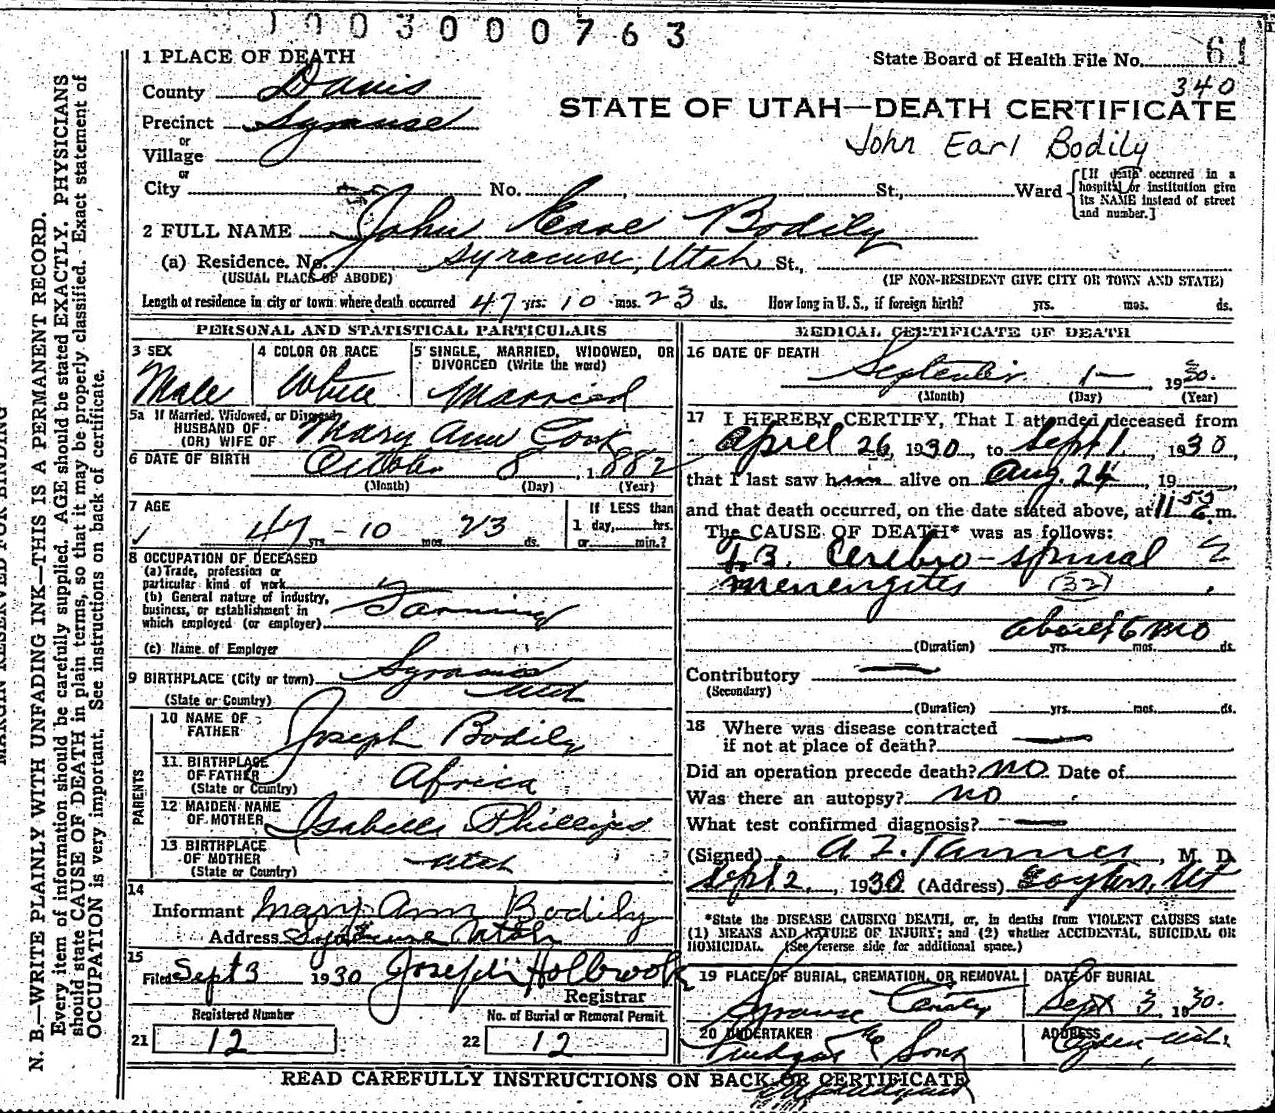 1003000763
1 PLACE OF DEATH
State Board of Health File No. 61
340
County Davis
STATE OF UTAH—DEATH CERTIFICATE
Precinct Syracuse
John Earl Bodily
or
Village
or
City No. St., Ward
[If death occurred in a hospital or institution give its NAME instead of street and number.]
2 FULL NAME John Earl Bodily
(a) Residence. No. Syracuse, Utah St.,
(USUAL PLACE OF ABODE) (IF NON-RESIDENT GIVE CITY OR TOWN AND STATE)
Length of residence in city or town where death occurred 47 yrs. 10 mos. 23 ds. How long in U. S., if foreign birth? yrs. mos. ds.
PERSONAL AND STATISTICAL PARTICULARS
3 SEX 4 COLOR OR RACE 5 SINGLE, MARRIED, WIDOWED, OR
DIVORCED (Write the word)
Male White Married
5a If Married, Widowed, or Divorced
HUSBAND OF
(OR) WIFE OF Mary Ann Cook
6 DATE OF BIRTH October 8, 1882
(Month) (Day) (Year)
7 AGE If LESS than
1 day, hrs.
47 yrs. 10 mos. 23 ds. or min.?
8 OCCUPATION OF DECEASED
(a) Trade, profession or
particular kind of work
(b) General nature of industry,
business, or establishment in
which employed (or employer) Farming
(c) Name of Employer
9 BIRTHPLACE (City or town) Syracuse
(State or Country) Utah
PARENTS
10 NAME OF
FATHER Joseph Bodily
11 BIRTHPLACE
OF FATHER Africa
(State or Country)
12 MAIDEN NAME
OF MOTHER Isabella Phillips
13 BIRTHPLACE
OF MOTHER Utah
(State or Country)
14
Informant Mary Ann Bodily
Address Syracuse Utah
15
Filed Sept 3 1930 Joseph Holbrook
Registrar
Registered Number No. of Burial or Removal Permit
21 12 22 12
MEDICAL CERTIFICATE OF DEATH
16 DATE OF DEATH
September 1— 1930.
(Month) (Day) (Year)
17 I HEREBY CERTIFY, That I attended deceased from
April 26, 1930, to Sept 1, 1930,
that I last saw him alive on Aug. 24, 19
and that death occurred, on the date stated above, at m.
The CAUSE OF DEATH* was as follows:
T.B. Cerebro-spinal
menengites (32)
about 6 mo
(Duration) yrs. mos. ds.
Contributory —
(Secondary)
(Duration) yrs. mos. ds.
18 Where was disease contracted
if not at place of death? —
Did an operation precede death? no Date of
Was there an autopsy? no
What test confirmed diagnosis? —
(Signed) A Z. Tanner, M. D.
Sept 2, 1930 (Address) Layton, Ut
*State the DISEASE CAUSING DEATH, or, in deaths from VIOLENT CAUSES state
(1) MEANS AND NATURE OF INJURY; and (2) whether ACCIDENTAL, SUICIDAL OR
HOMICIDAL. (See reverse side for additional space.)
19 PLACE OF BURIAL, CREMATION, OR REMOVAL DATE OF BURIAL
Syracuse Sept 3 1930.
20 UNDERTAKER ADDRESS
& Sons Ogden Utah.
READ CAREFULLY INSTRUCTIONS ON BACK OF CERTIFICATE
MARGIN RESERVED FOR BINDING
N. B.—WRITE PLAINLY WITH UNFADING INK—THIS IS A PERMANENT RECORD.
Every item of information should be carefully supplied. AGE should be stated EXACTLY. PHYSICIANS
should state CAUSE OF DEATH in plain terms, so that it may be properly classified. Exact statement of
OCCUPATION is very important. See instructions on back of certificate.